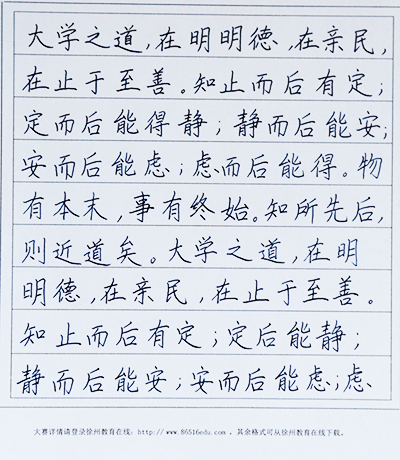 大学之道,在明明德,在亲民,
在止于至善。知止而后有定;
定而后能得静;静而后能安;
安而后能虑;虑而后能得。物
有本末,事有终始。知所先后,
则近道矣。大学之道,在明
明德,在亲民,在止于至善。
知止而后有定;定后能静;
静而后能安;安而后能虑;虑
大赛详情请登录徐州教育在线: http://www.86516edu.com ,其余格式可从徐州教育在线下载。